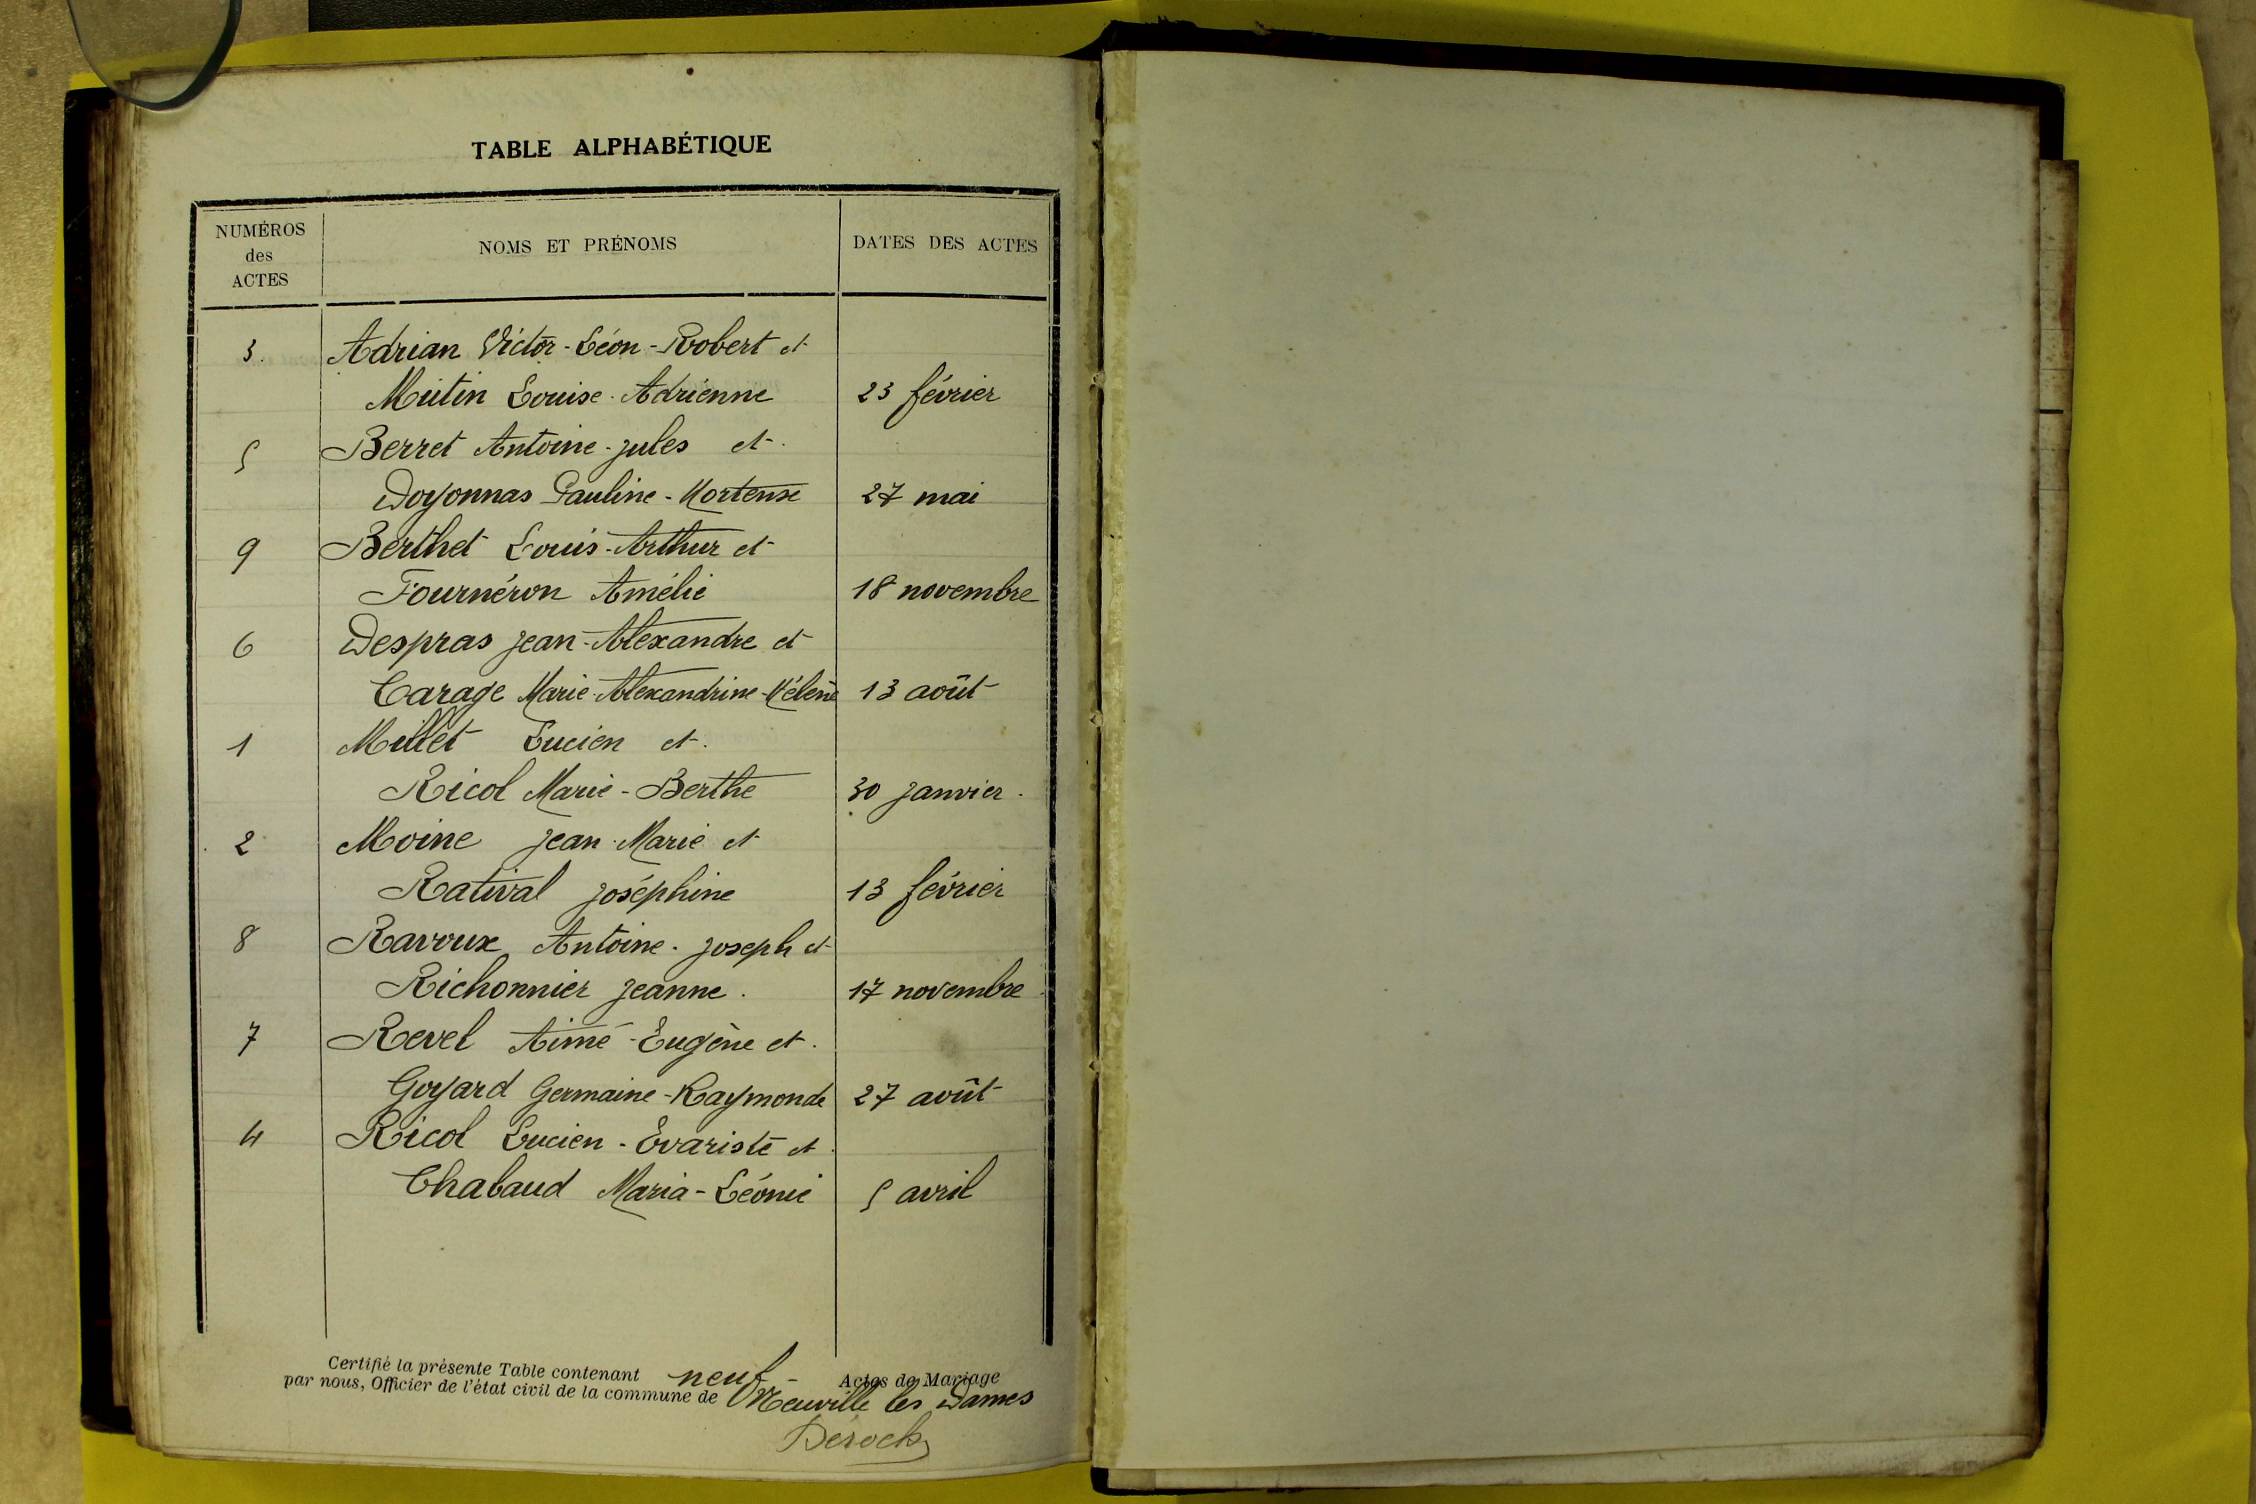 TABLE ALPHABÉTIQUE
NUMÉROS
des
ACTES
NOMS ET PRÉNOMS
DATES DES ACTES
3. Adrian Victor-Léon-Robert et
Mutin Louise-Adrienne 23 février
5 Berret Antoine-Jules et
Doyonnas Pauline-Hortense 27 mai
9 Berthet Louis-Arthur et
Fournéron Amélie 18 novembre
6 Despras Jean-Alexandre et
Carage Marie-Alexandrine-Hélène 13 août
1 Millet Lucien et
Ricol Marie-Berthe 30 janvier
2 Moine Jean-Marie et
Ratival Joséphine 13 février
8 Ravoux Antoine-Joseph et
Richonnier Jeanne. 17 novembre
7 Revel Aimé-Eugène et
Goyard Germaine-Raymonde 27 août
4 Ricol Lucien-Evariste et
Chabaud Maria-Léonie 5 avril
Certifié la présente Table contenant neuf Actes de Mariage
par nous, Officier de l'état civil de la commune de Neuville les Dames